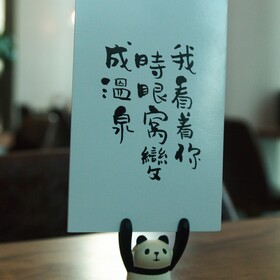 我看着你
時眼窩變
成溫泉